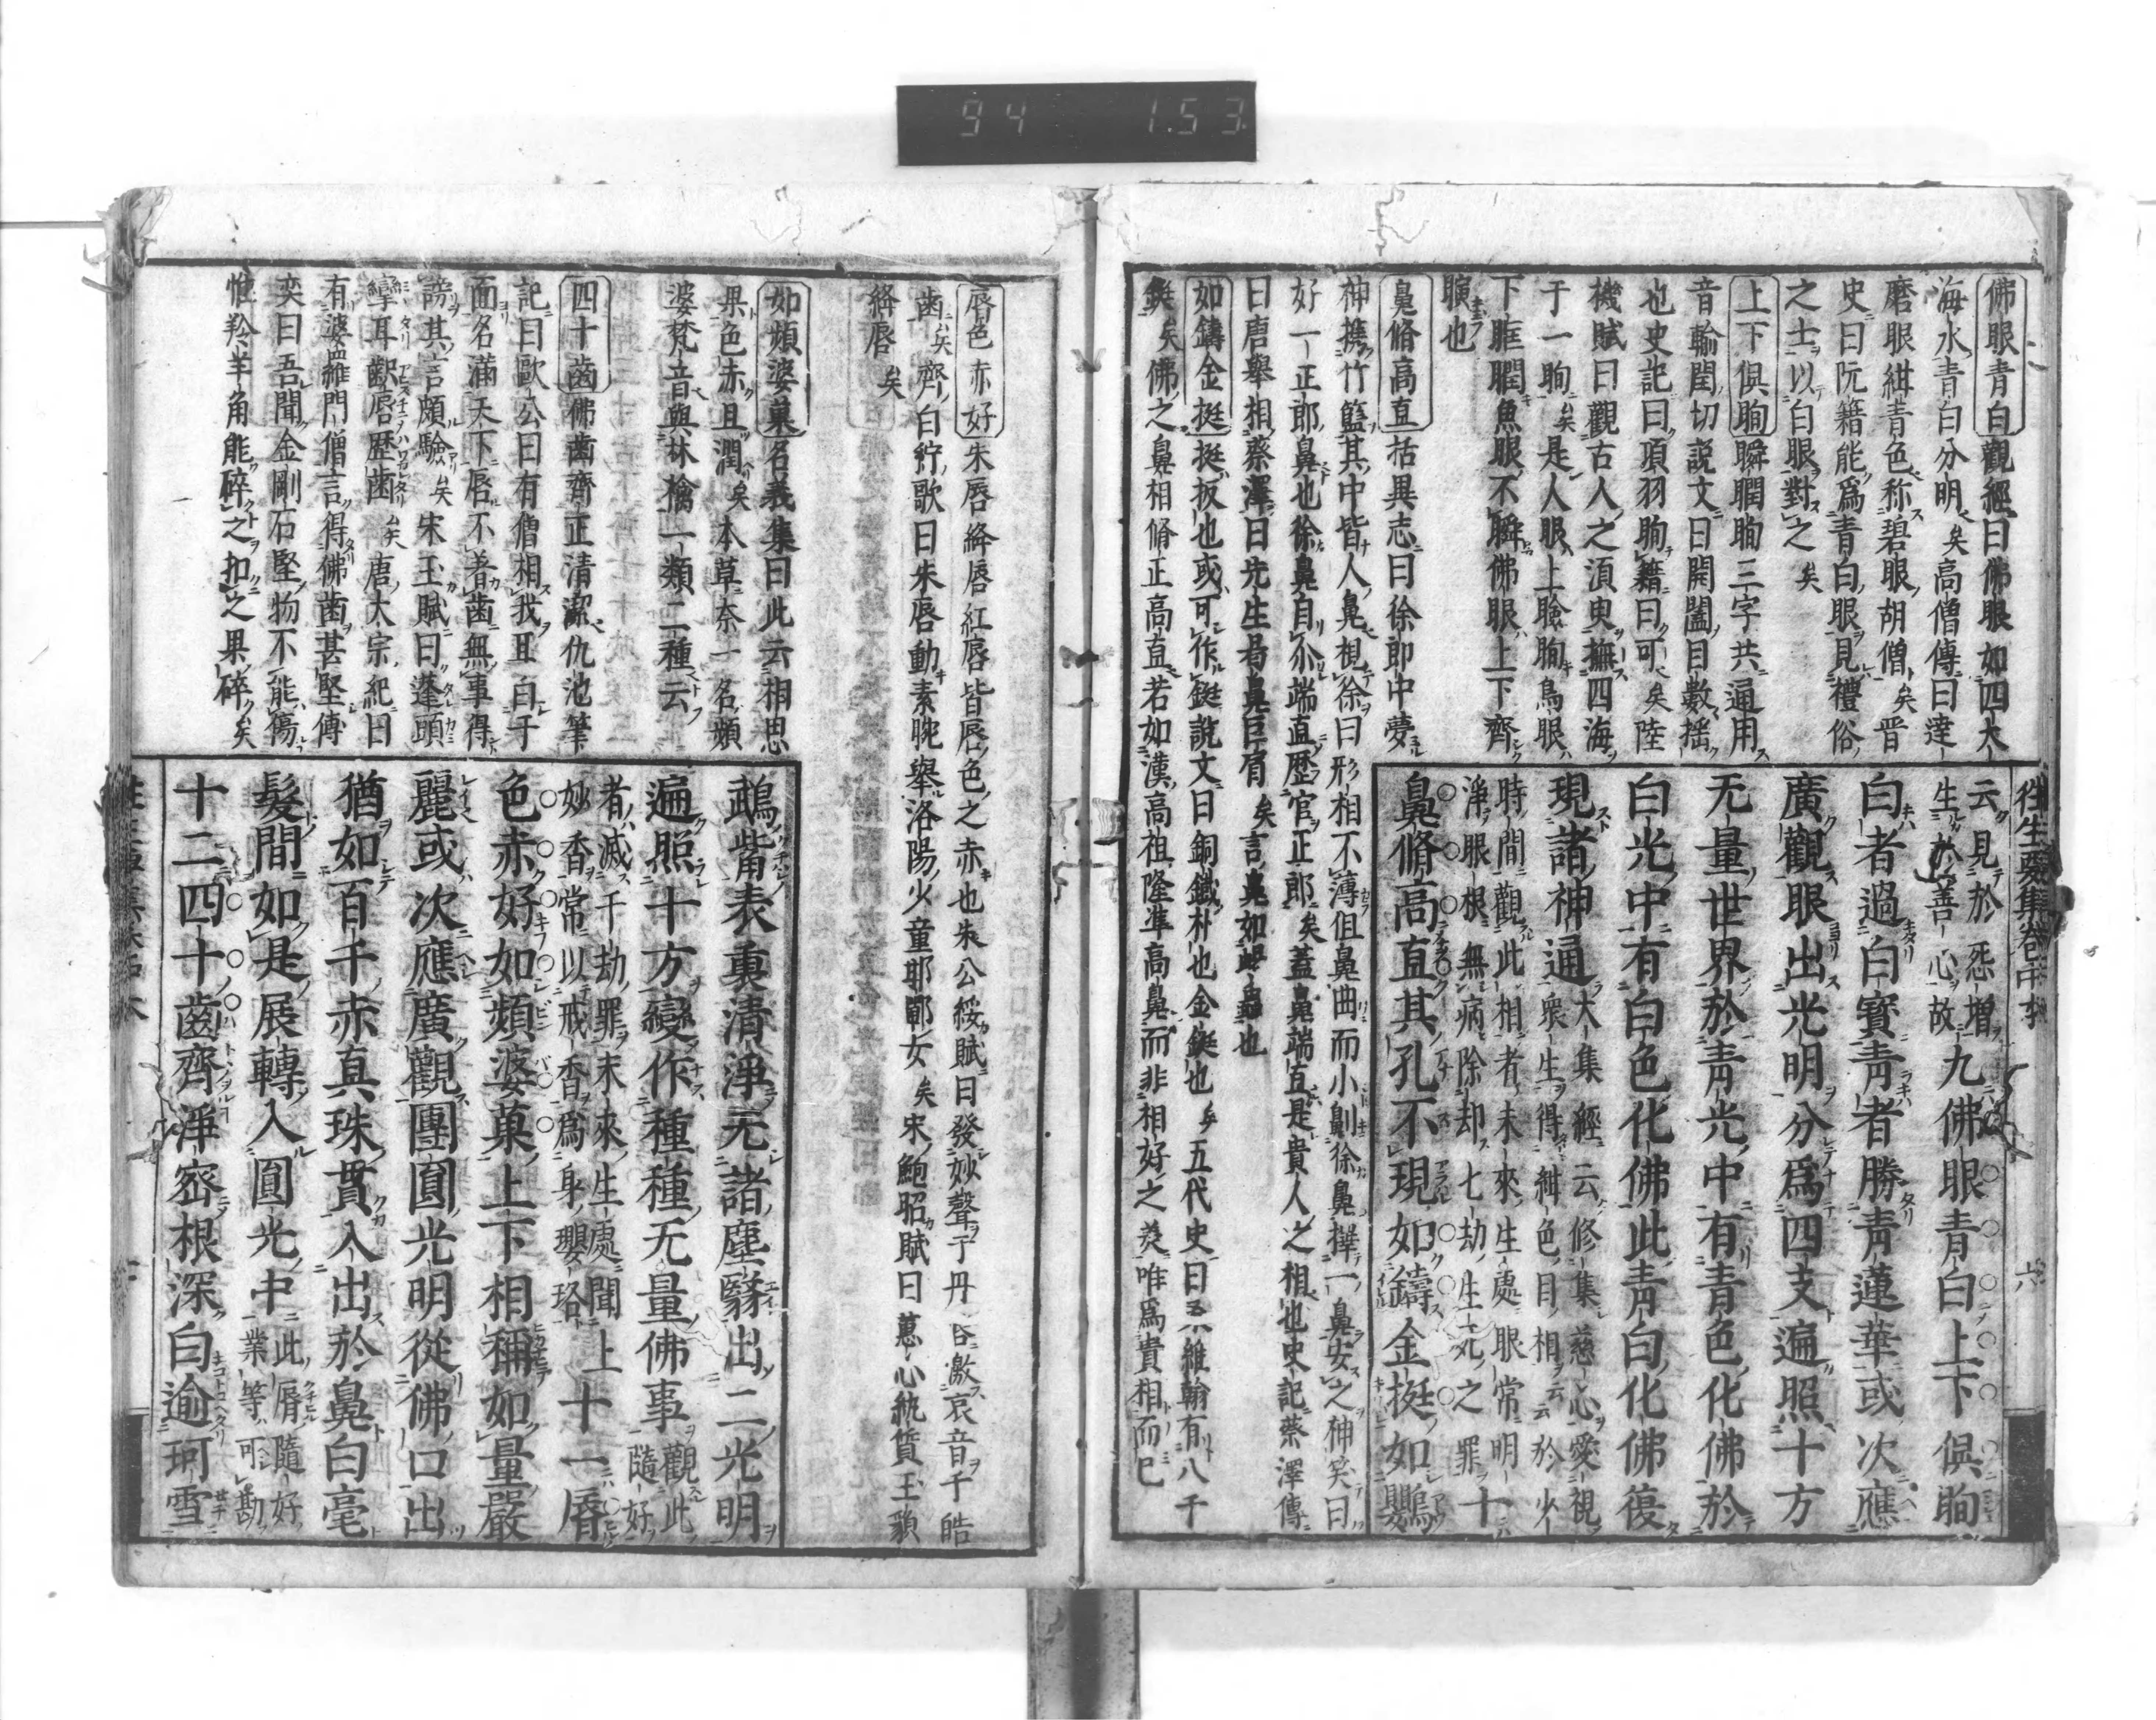 94 1.53
佛眼青白觀經曰佛眼如四大
海水青白分明矣高僧傳曰達
磨眼紺青色称碧眼胡僧矣晋
史曰阮籍能爲青白眼見禮俗
之士以白眼對之矣
上下倶眴瞬瞤眴三字共通用
音輸閏切説文曰開闔目數揺
也史記曰項羽眴籍曰可矣陸
機賦曰觀古人之湏臾撫四海
于一眴矣是人眼上瞼眴鳥眼
下眶瞤魚眼不瞬佛眼上下齊
也
鼻脩高直括異志曰徐郎中夢
神携竹籃其中皆人鼻視徐曰形相不薄但鼻曲而小劓徐鼻擇一鼻安之神笑曰
好一正郎鼻也徐鼻自尓端直歴官正郎矣蓋鼻端直是貴人之相也史記蔡澤傳
曰唐舉相蔡澤曰先生曷鼻巨肩矣言鼻如蝎蟲也
如鑄金挺挺扳也或可作鋌說文曰銅鐵朴也金鋌也矣五代史曰
鋌矣佛之鼻相脩正高直若如漢高祖隆準高鼻而非相好之美唯爲貴相而已
往生要集卷中本 六
云見於怨憎
生於善心故
九佛眼青白上下倶眴
白者過白寳青者勝青蓮華或次應
廣觀眼出光明分爲四支遍照十方
无量世界於青光中有青色化佛於
白光中有白色化佛此青白化佛復
現諸神通
大集經云修集慈心愛視
衆生得紺色目相云云於少
時間觀此相者未來生處眼常明
淨眼根無病除却七劫生死之罪
十
鼻脩高直其孔不現如鑄金挺如鸚
唇色赤好朱唇絳唇紅唇皆唇色之赤也朱公綏賦曰發妙聲于丹唇激哀音于皓
齒矣齊白紵歌曰朱唇動素腕舉洛陽少童邯鄲女矣宋鮑昭賦曰蕙心紈質玉貌
絳唇矣
如頻婆菓名義集曰此云相思
果色赤且潤矣本草柰一名頻
婆梵音與林檎一類二種云
四十齒佛齒齊正清潔仇池筆
記曰歐公曰有僧相我耳白于
面名滿天下唇不著齒無事得
謗其言頗驗矣宋玉賦曰蓬頭
攣耳齞唇歴齒矣唐太宗紀曰
有婆羅門僧言得佛齒甚堅傅
奕曰吾聞金剛石堅物不能傷
惟羚羊角能碎之扣之果碎矣
鵡觜表裏清淨无諸塵翳出二光明
遍照十方變作種種无量佛事
觀此
隨好
者滅千劫罪未來生處聞上
妙香常以戒香爲身瓔珞
十一脣
色赤好如頻婆菓上下相稱如量嚴
麗或次應廣觀團圓光明從佛口出
猶如百千赤真珠貫入出於鼻白毫
髮間如是展轉入圓光中
此脣隨好
業等可勘
十二四十齒齊淨密根深白逾珂雪